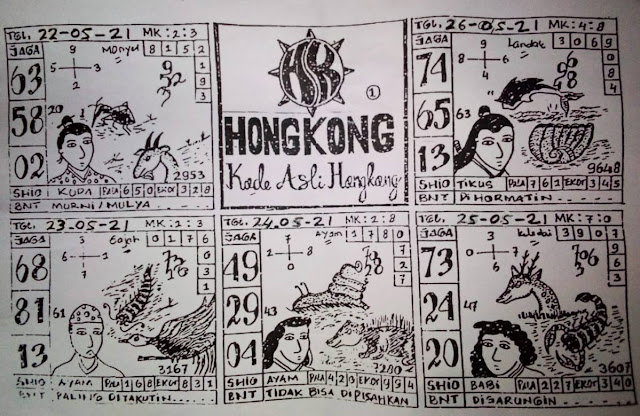 TGL. 22-05-21 MK: 2:3
JAGA 9 Monyet 8 1 5 2
63 5 3 1
2 9
3
58 20
02 2953
SHIO KUDA PALA 6 5 0 EKOR 3 2 8
BNT MURNI/MULYA
1
HONGKONG
Kode Asli Hongkong
TGL. 26-05-21 MK: 4:8
JAGA 9 Landak 3 0 6 9
74 8 6 0
4 8
4
65 63
13 9648
SHIO TIKUS PALA 7 6 1 EKOR 3 4 5
BNT DIHORMATIN....
TGL. 23-05-21 MK: 1:3
JAGA 3 Gajah 0 1 7 6
68 6 7 0
1 3
1
81 61
13 3167
SHIO AYAM PALA 1 6 8 EKOR 8 3 1
BNT PALING DITAKUTIN....
TGL. 24.05-21 MK: 2:8
JAGA 7 Ayam 1 7 8 0
49 2 8 7
0 2
7
29 43
04 7280
SHIO AYAM PALA 4 2 0 EKOR 9 9 4
BNT TIDAK BISA DIPISAHKAN
TGL. 25-05-21 MK: 7:0
JAGA 3 Keledai 3 9 0 7
73 0 6 9
6
3
24 47
20 3607
SHIO BABI PALA 2 2 7 EKOR 3 4 0
BNT DISARUNGIN......